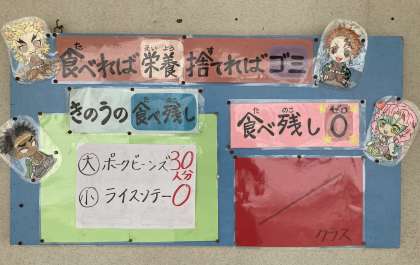 食べれば栄養 捨てればゴミ
きのうの食べ残し
大 ポークビーンズ 30人分
小 ライスソテー 0
食べ残し 0
クラス